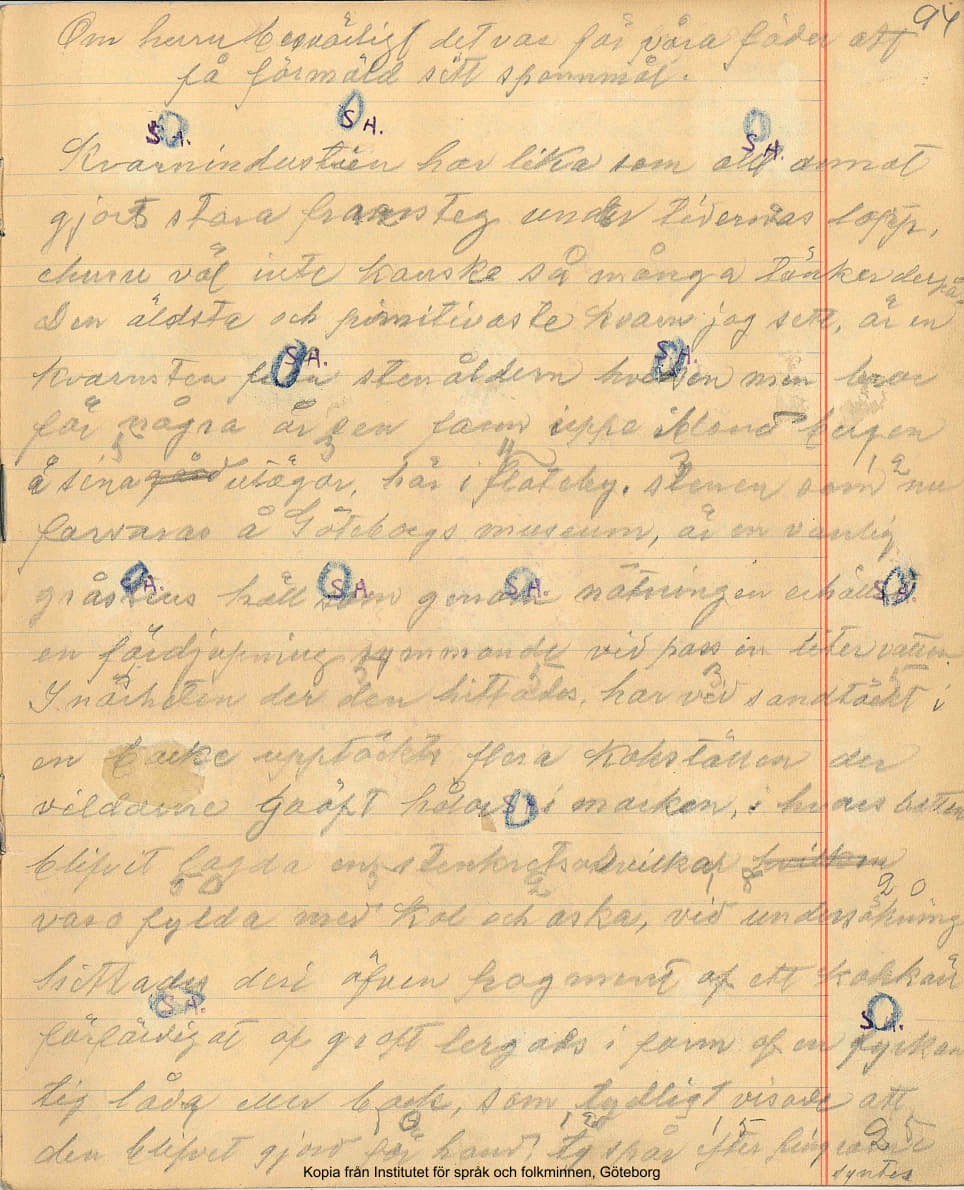 94
Om huru besvärligt det var för våra fäder att
få förmäld sitt spannmål.
S. H. S H. S H.
Kvarnindustrien har lika som allt annat
gjort stora framsteg under tidernas lopp,
ehuru väl inte kanske så många tänker derpå
Den äldsta och primitivaste kvarn jag sett, är en
S H. S H.
kvarnsten från stenåldern hvilken min bror
för några år sen fann uppå bergen
å sina utägor, här i Flateby. Stenen som nu
förvaras å Göteborgs museum, är en vanlig
H. S H. S H. S H.
gråstens häll som genom nötningen erhållit
en fördjupning rymmande vid pass en liter vatten
I närheten der den hittades, har ved sandtäckt i
en backe upptäckts flera kokställen der
vildarne gräft hålor i marken, i hvars botten
S H.
blifvit lagda en stenkrets hvilka hvilken
varo fylda med kol och aska, vid undersökning
20
hittades deri äfven fragment af ett kokkärl
S H. S H.
förfärdigat af groft lergods i form af en fyrkan
tig låda eller back, som tydligt visade att
den blifvit gjord för hand, ty spår efter fingrarne
syntes
Kopia från Institutet för språk och folkminnen, Göteborg